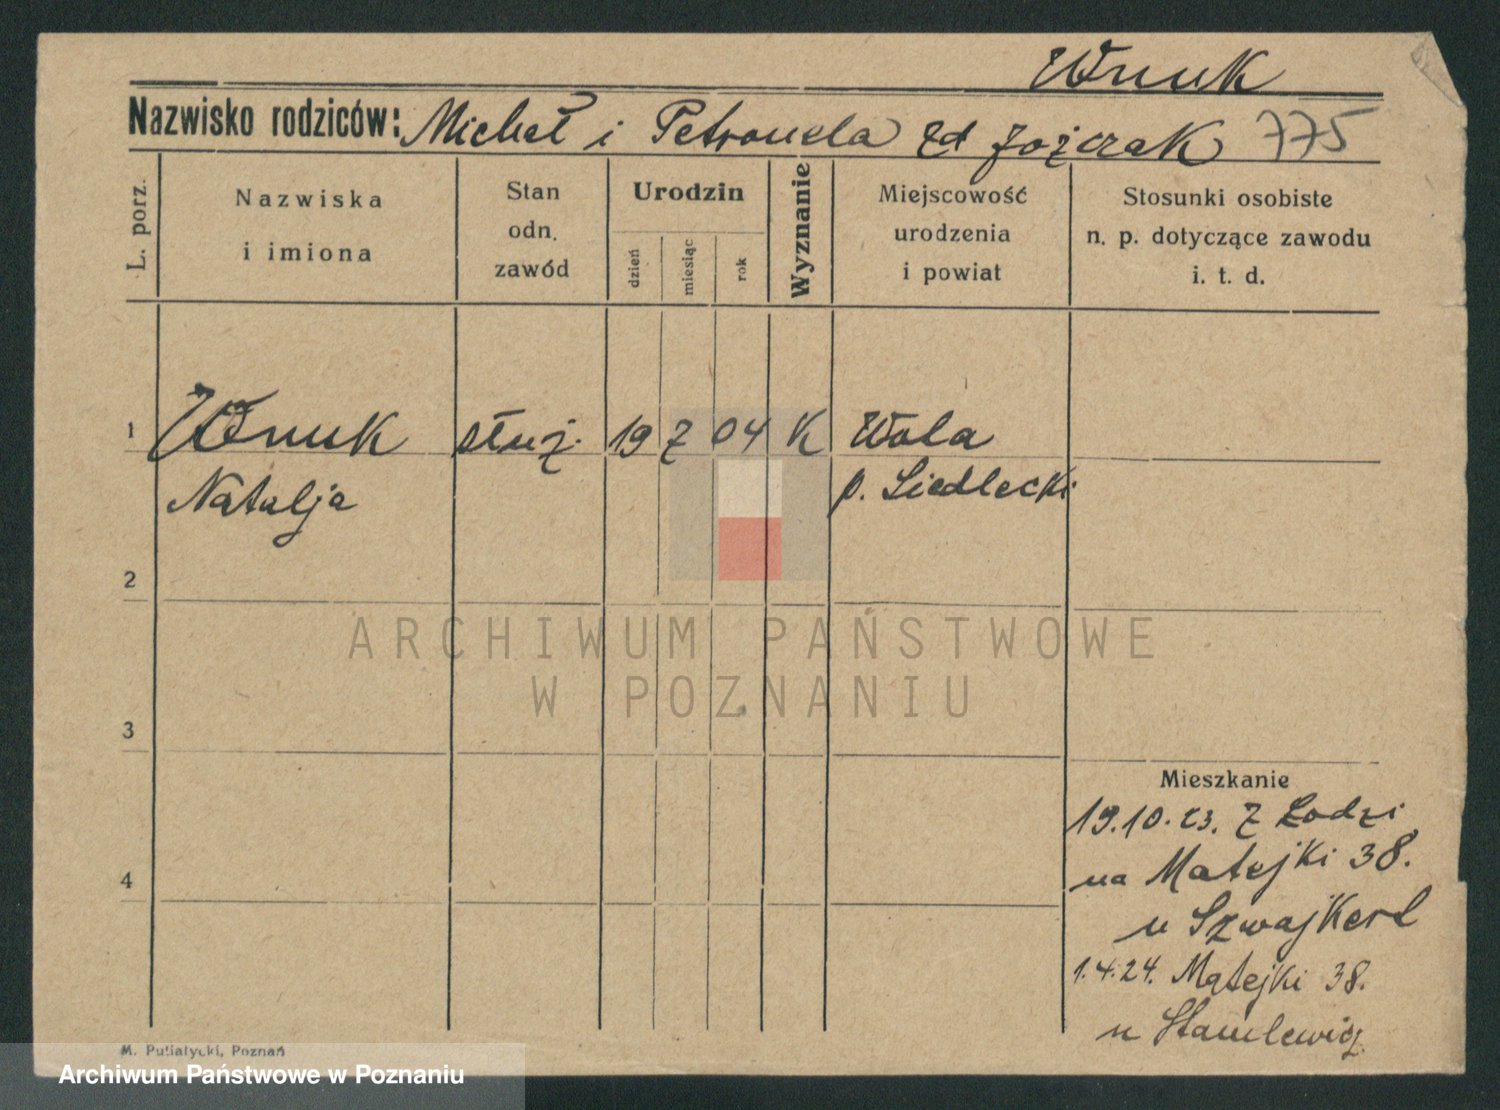 Wnuk
Nazwisko rodziców: Michał i Petronela zd Jożczak 775
L. porz.
Nazwiska
i imiona
Stan
odn.
zawód
Urodzin
dzień
miesiąc
rok
Wyznanie
Miejscowość
urodzenia
i powiat
Stosunki osobiste
n. p. dotyczące zawodu
i. t. d.
1 Wnuk służ. 19 7 04 K Wola
Natalja p. Siedlecki
2
3
4
Mieszkanie
19.10.23. z Łodzi
na Matejki 38.
u Szwajkert
1.4.24. Matejki 38.
u
M. Putiatycki, Poznań
ARCHIWUM PAŃSTWOWE
W POZNANIU
Archiwum Państwowe w Poznaniu